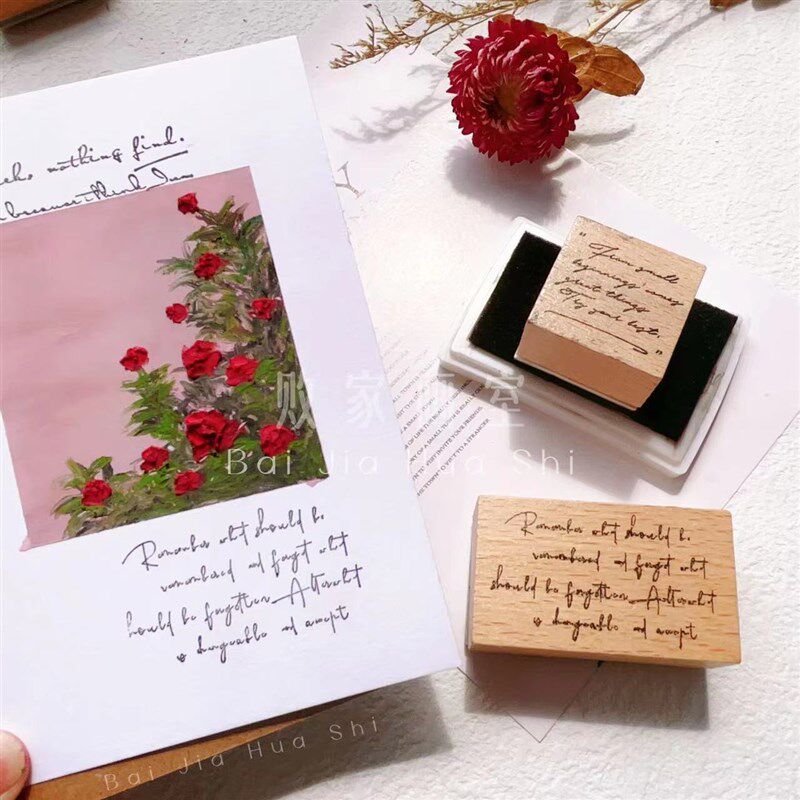 nothing find.
because i think I am
Remember what should be
remembered and forget what
should be forgotten Alter what
is changeable and accept
"From small
beginnings comes
great things
Try your best."
Remember what should be
remembered and forget what
should be forgotten Alter what
is changeable and accept
败家画室
Bai Jia Hua Shi
Bai Jia Hua Shi